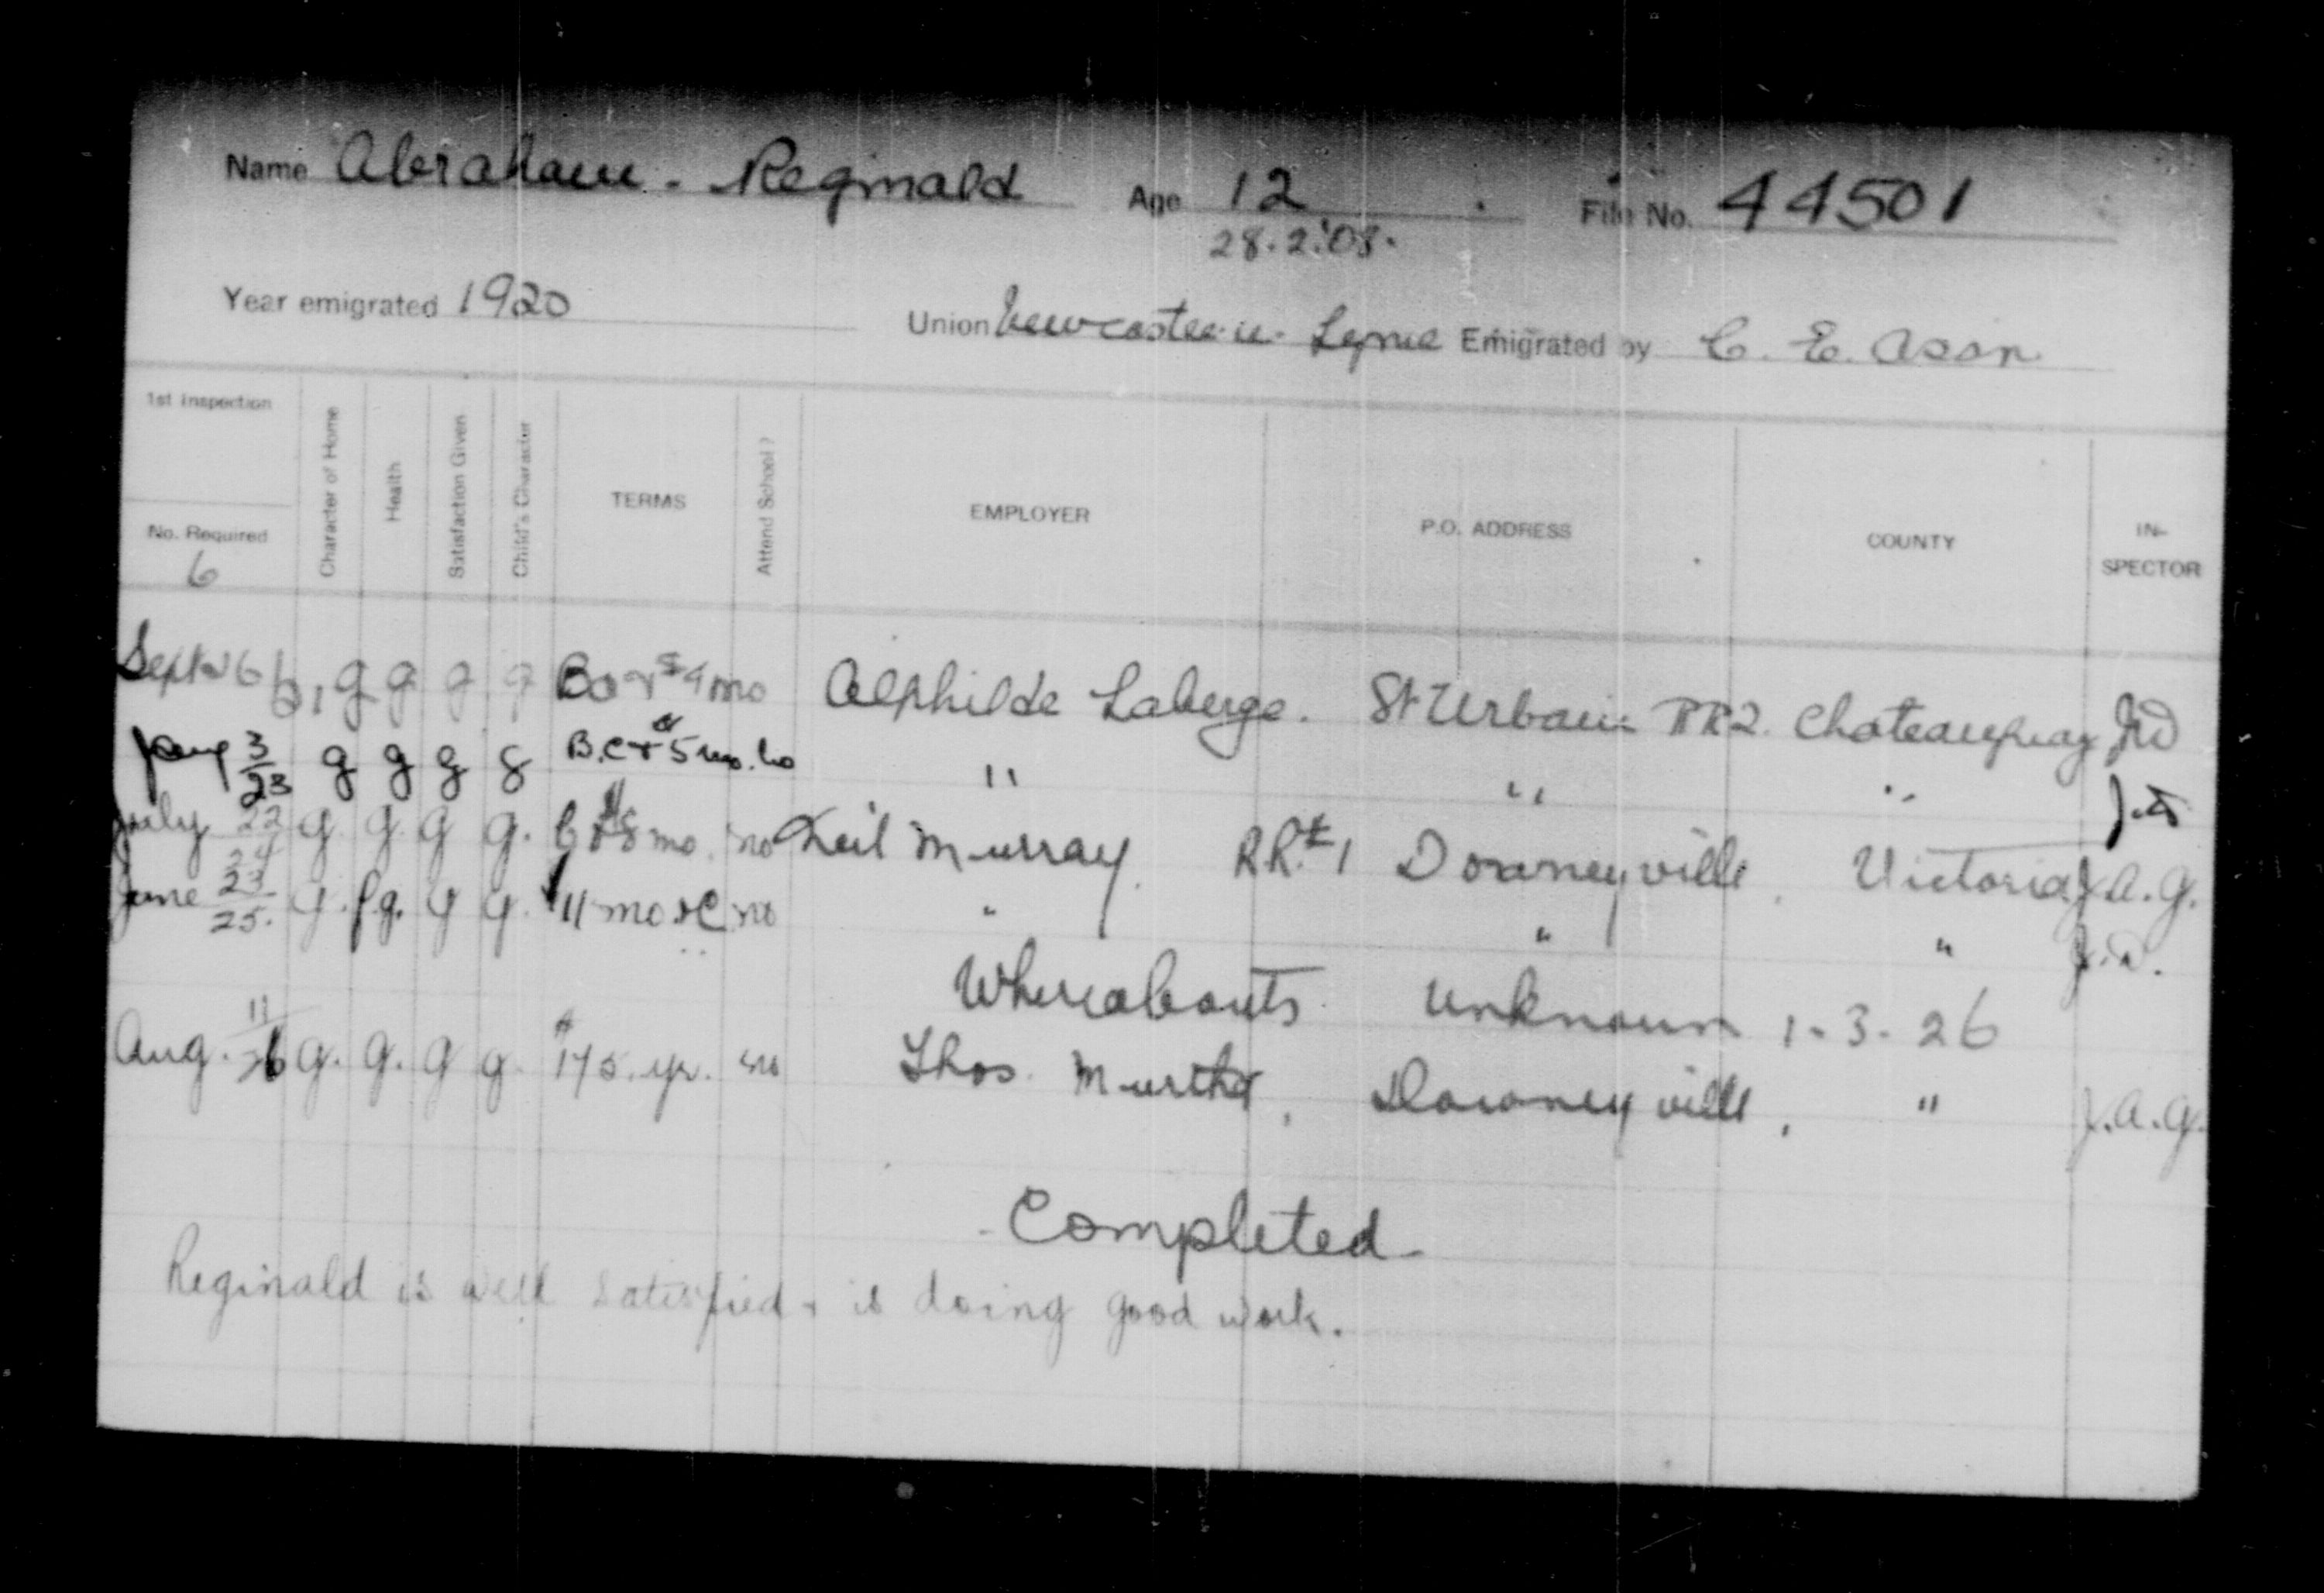 Name Abraham - Reginald Age 12 File No. 44501
28.2.'08.
Year emigrated 1920 Union Newcastle-u-Lyme Emigrated by C. E. Assn.
1st Inspection Character of Home Health Satisfaction Given Child's Character TERMS Attend School? EMPLOYER P.O. ADDRESS COUNTY IN-SPECTOR
No. Required
6
Sept 26 g g g g $4 mo Alphilde Laberge. St Urbain RR2. Chateauguay
3/23 g g g g B.C + $5 mo. no " " "
July 22/24 g. g. g g. C + $8 mo. no Neil Murray. R.R.#1 Downeyville, Victoria J.A.G.
June 23/25. g. f.g. g g. $11 mo + C no " " " J.D.
Whereabouts unknown 1-3-26
Aug. 11/26 g. g. g g. $175. yr. no Thos. Murtha, Downeyville, " J.A.G.
Completed
Reginald is well satisfied + is doing good work.